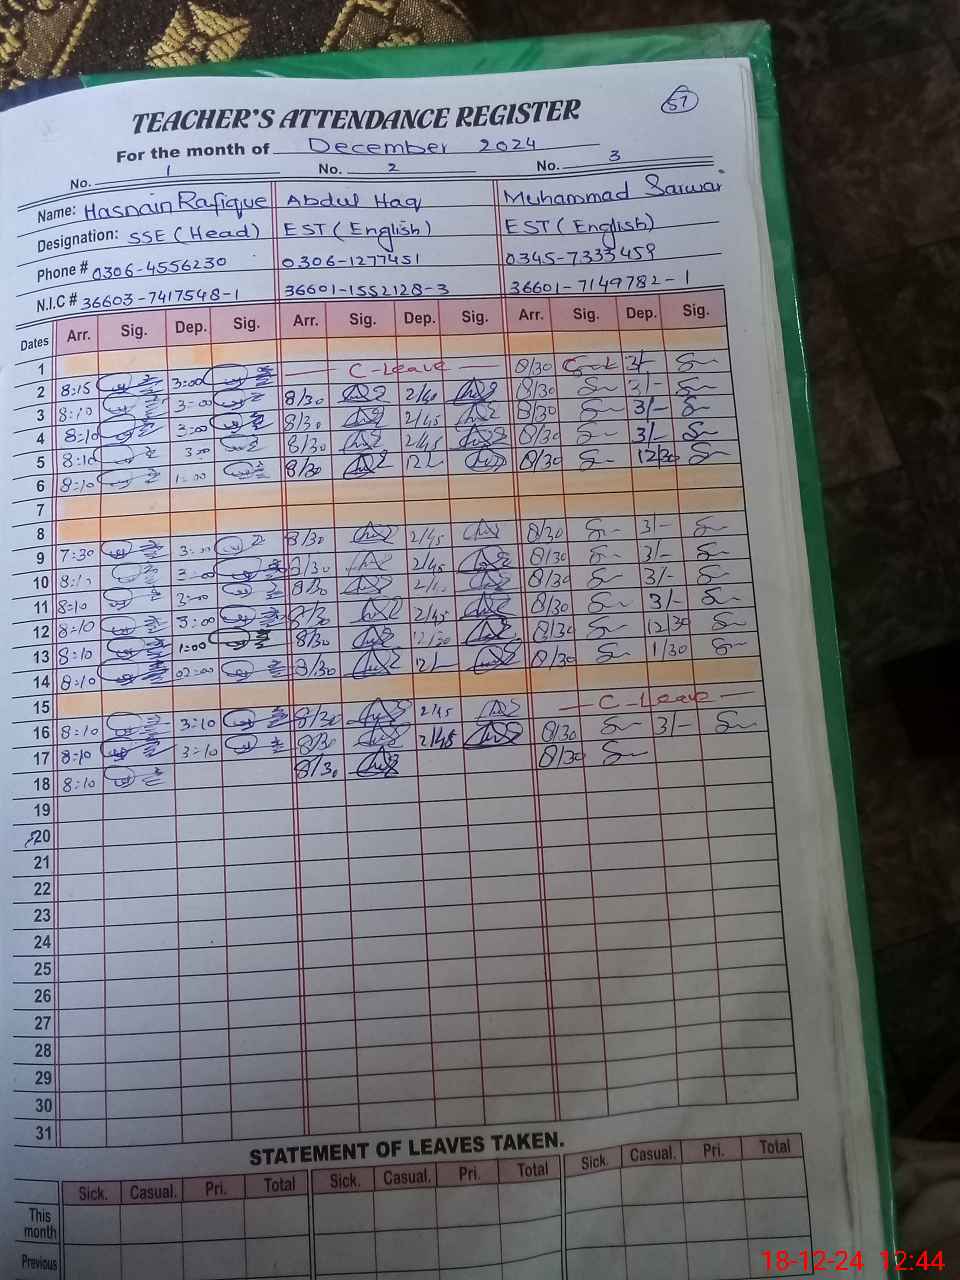 57
TEACHER'S ATTENDANCE REGISTER
For the month of December 2024
No. 1 No. 2 No. 3
Name: Hasnain Rafique Abdul Haq Muhammad Sarwar
Designation: SSE (Head) EST (English) EST (English)
Phone # 0306-4556230 0306-1277451 0345-7333459
N.I.C # 36603-7417548-1 36601-1552128-3 36601-7149782-1
Dates Arr. Sig. Dep. Sig. Arr. Sig. Dep. Sig. Arr. Sig. Dep. Sig.
1
2 8:15 3:00 C-Leave 8/30 3/-
3 8:10 3:00 8/30 2/40 8/30 3/-
4 8:10 3:00 8/30 2/45 8/30 3/-
5 8:10 3:00 8/30 2/45 8/30 3/-
6 8:10 1:00 8/30 12/- 8/30 12/30
7
8
9 7:30 3:00 8/30 2/45 8/30 3/-
10 3:00 8/30 2/45 8/30 3/-
11 8:10 3:00 8/30 8/30 3/-
12 8:10 3:00 8/30 2/45 8/30 3/-
13 8:10 1:00 8/30 12/30 8/30 12/30
14 8:10 02:00 8/30 12/- 8/30 1/30
15
16 8:10 3:10 8/30 2/45 C-Leave
17 8:10 3:10 8/30 2/45 8/30 3/-
18 8:10 8/30 8/30
19
20
21
22
23
24
25
26
27
28
29
30
31
STATEMENT OF LEAVES TAKEN.
Sick. Casual. Pri. Total Sick. Casual. Pri. Total Sick. Casual. Pri. Total
This
month
Previous
18-12-24 12:44